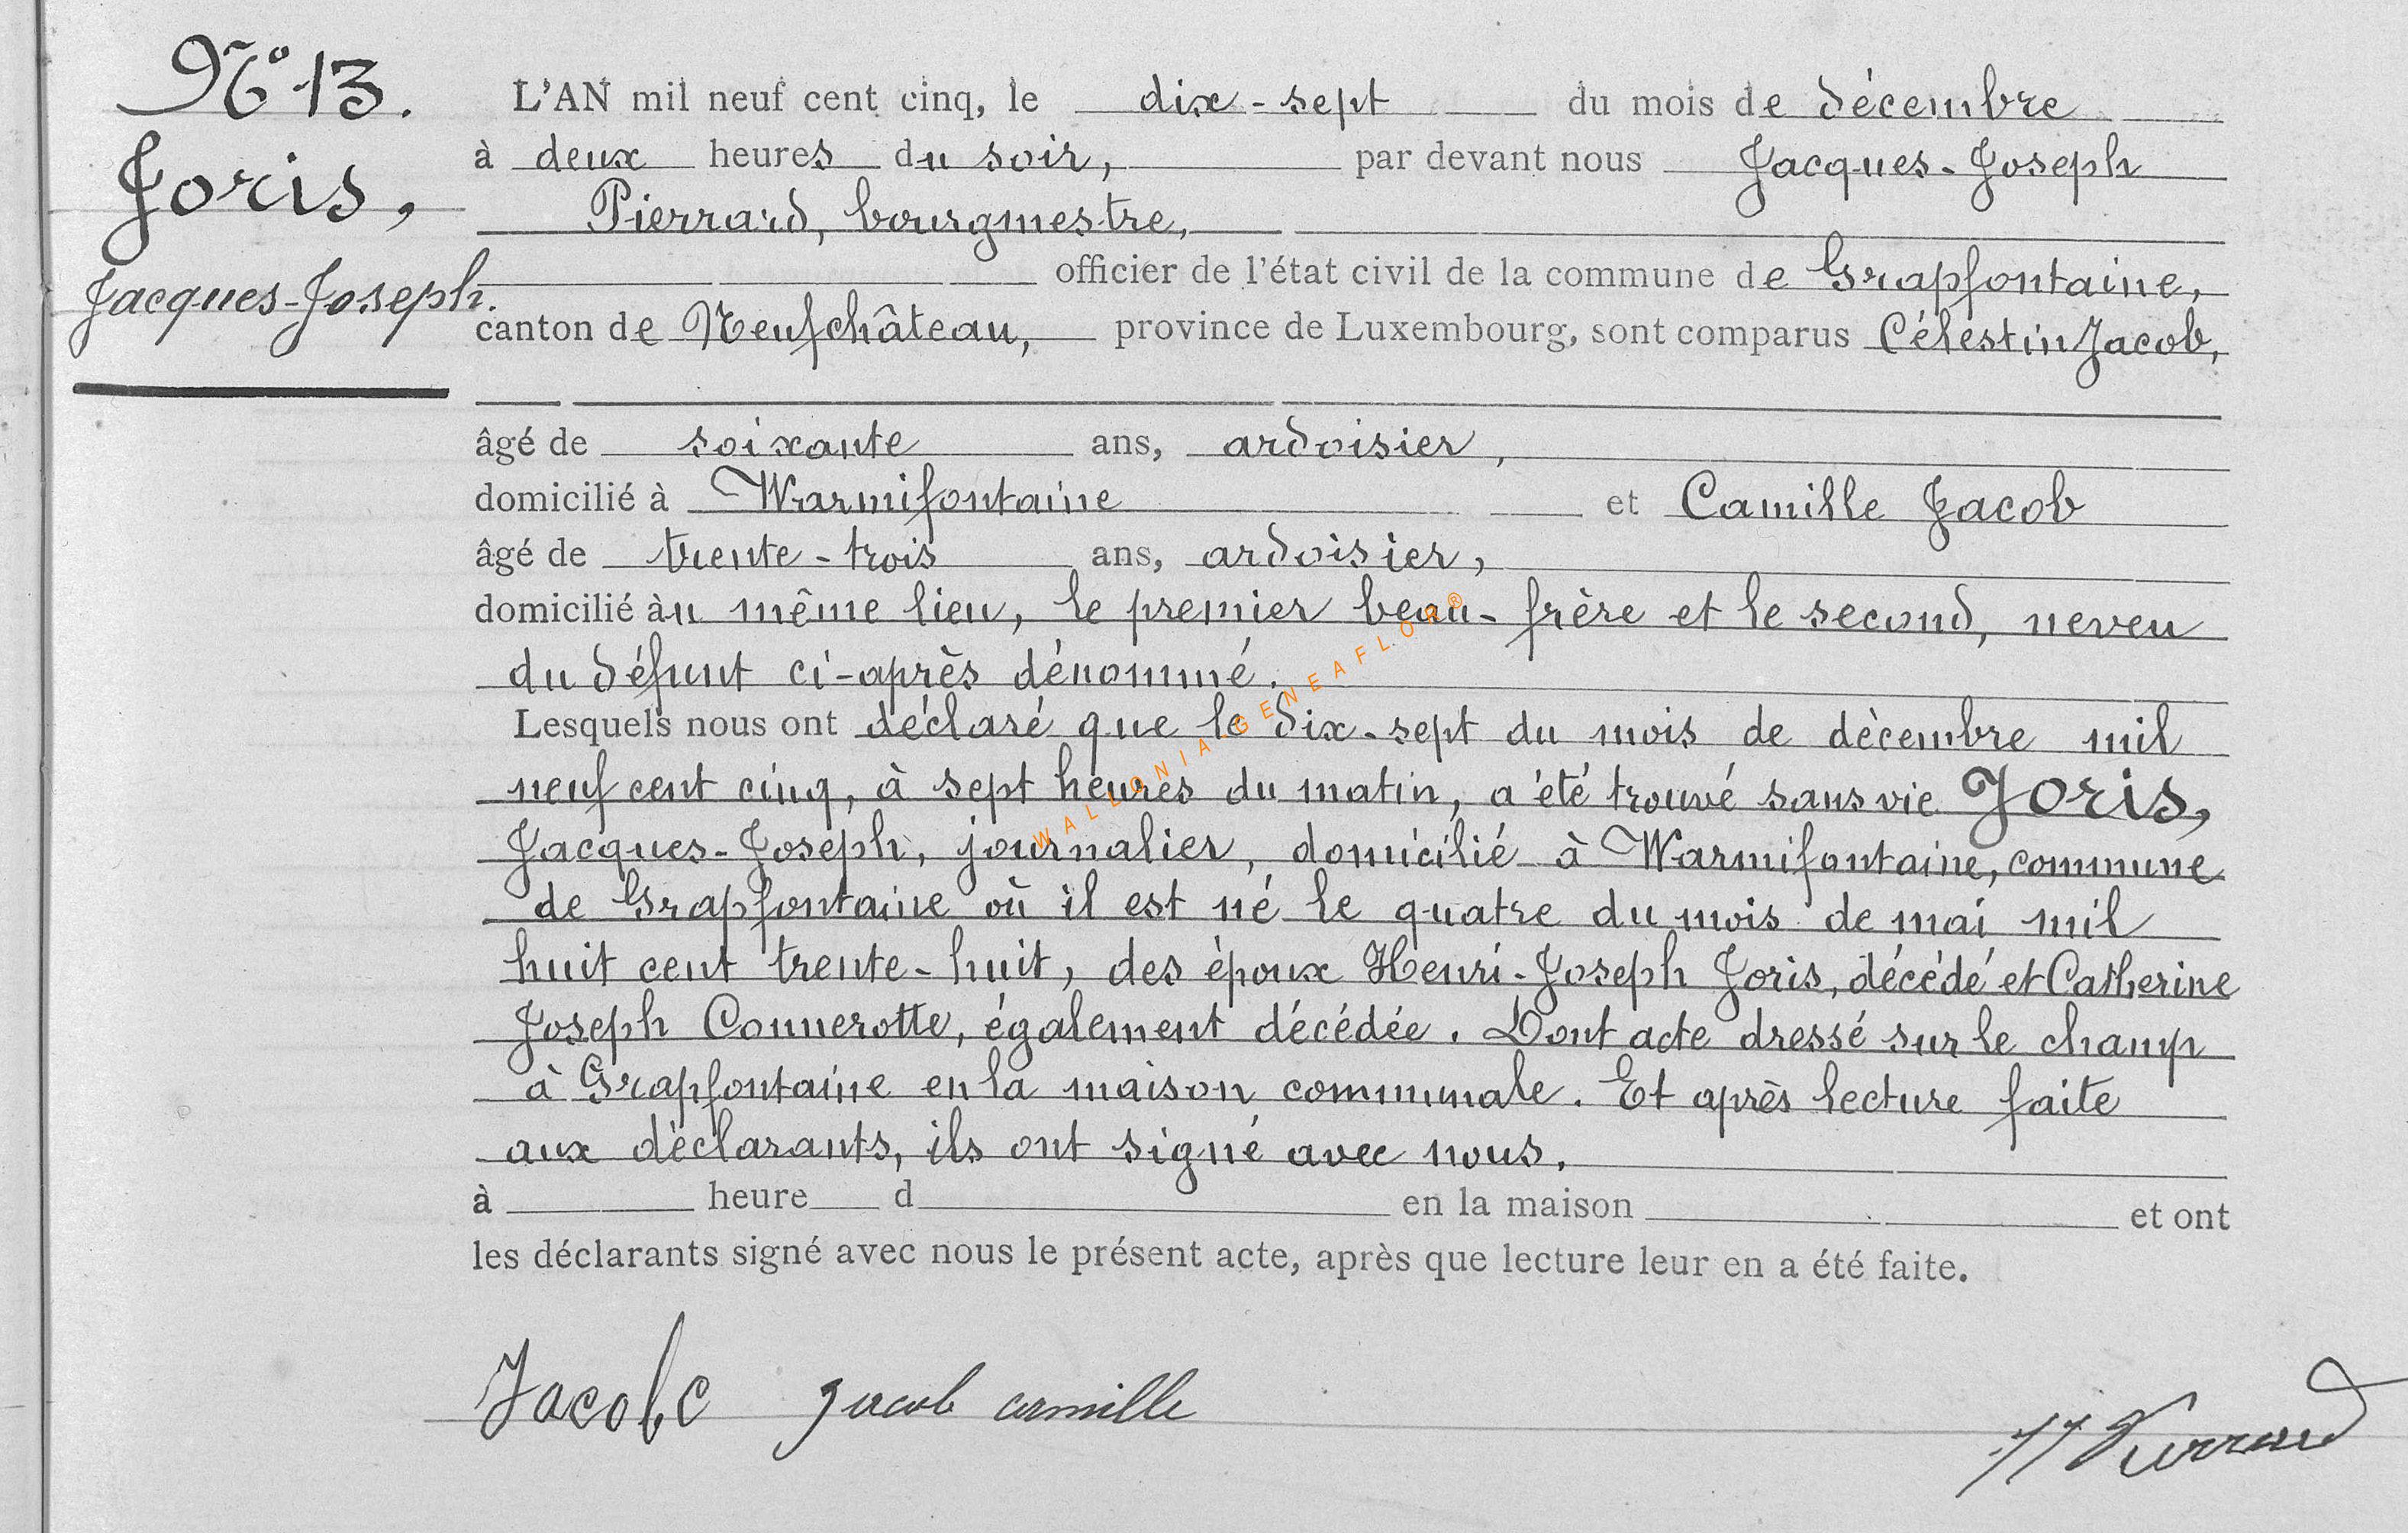 N° 13.
Joris,
Jacques-Joseph.
L'AN mil neuf cent cinq, le dix-sept du mois de décembre
à deux heures du soir, par devant nous Jacques-Joseph
Pierrard, bourgmestre,
officier de l'état civil de la commune de Grapfontaine,
canton de Neufchâteau, province de Luxembourg, sont comparus Célestin Jacob,
âgé de soixante ans, ardoisier,
domicilié à Warmifontaine et Camille Jacob
âgé de trente-trois ans, ardoisier,
domicilié àu même lieu, le premier beau-frère et le second, neveu
du défunt ci-après dénommé.
Lesquels nous ont déclaré que le dix-sept du mois de décembre mil
neuf cent cinq, à sept heures du matin, a été trouvé sans vie Joris,
Jacques-Joseph, journalier, domicilié à Warmifontaine, commune
de Grapfontaine où il est né le quatre du mois de mai mil
huit cent trente-huit, des époux Henri-Joseph Joris, décédé et Catherine
Joseph Connerotte, également décédée. Dont acte dressé sur le champ
à Grapfontaine en la maison communale. Et après lecture faite
aux déclarants, ils ont signé avec nous.
à heure d en la maison et ont
les déclarants signé avec nous le présent acte, après que lecture leur en a été faite.
Jacob C Jacob camille JJ Pierrard
WALLONIA GENEAFLOR®